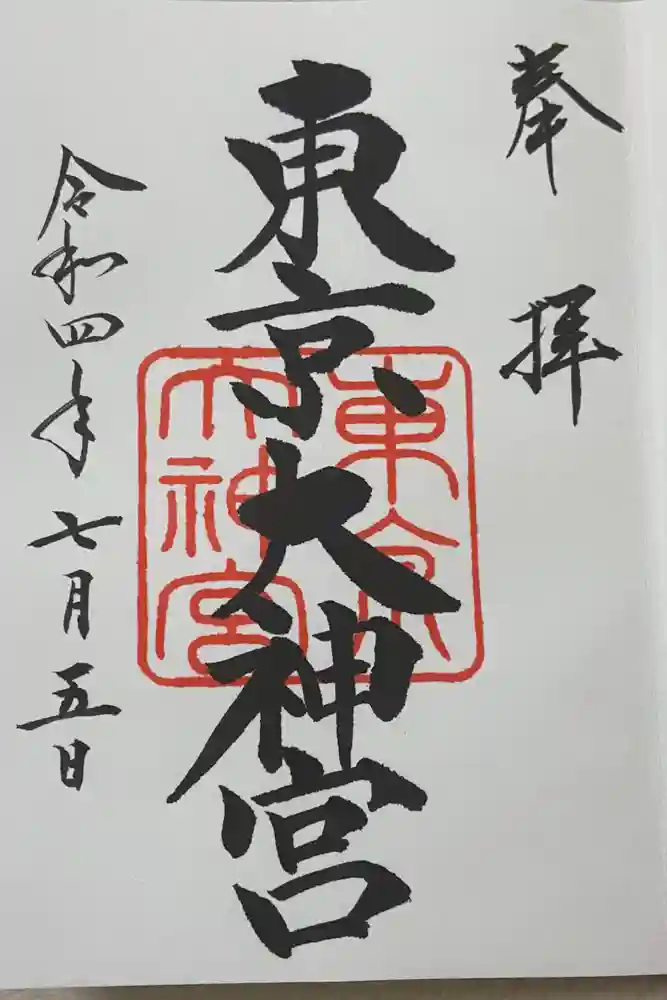 奉拝
東京大神宮
東京
大神宮
令和四年七月五日